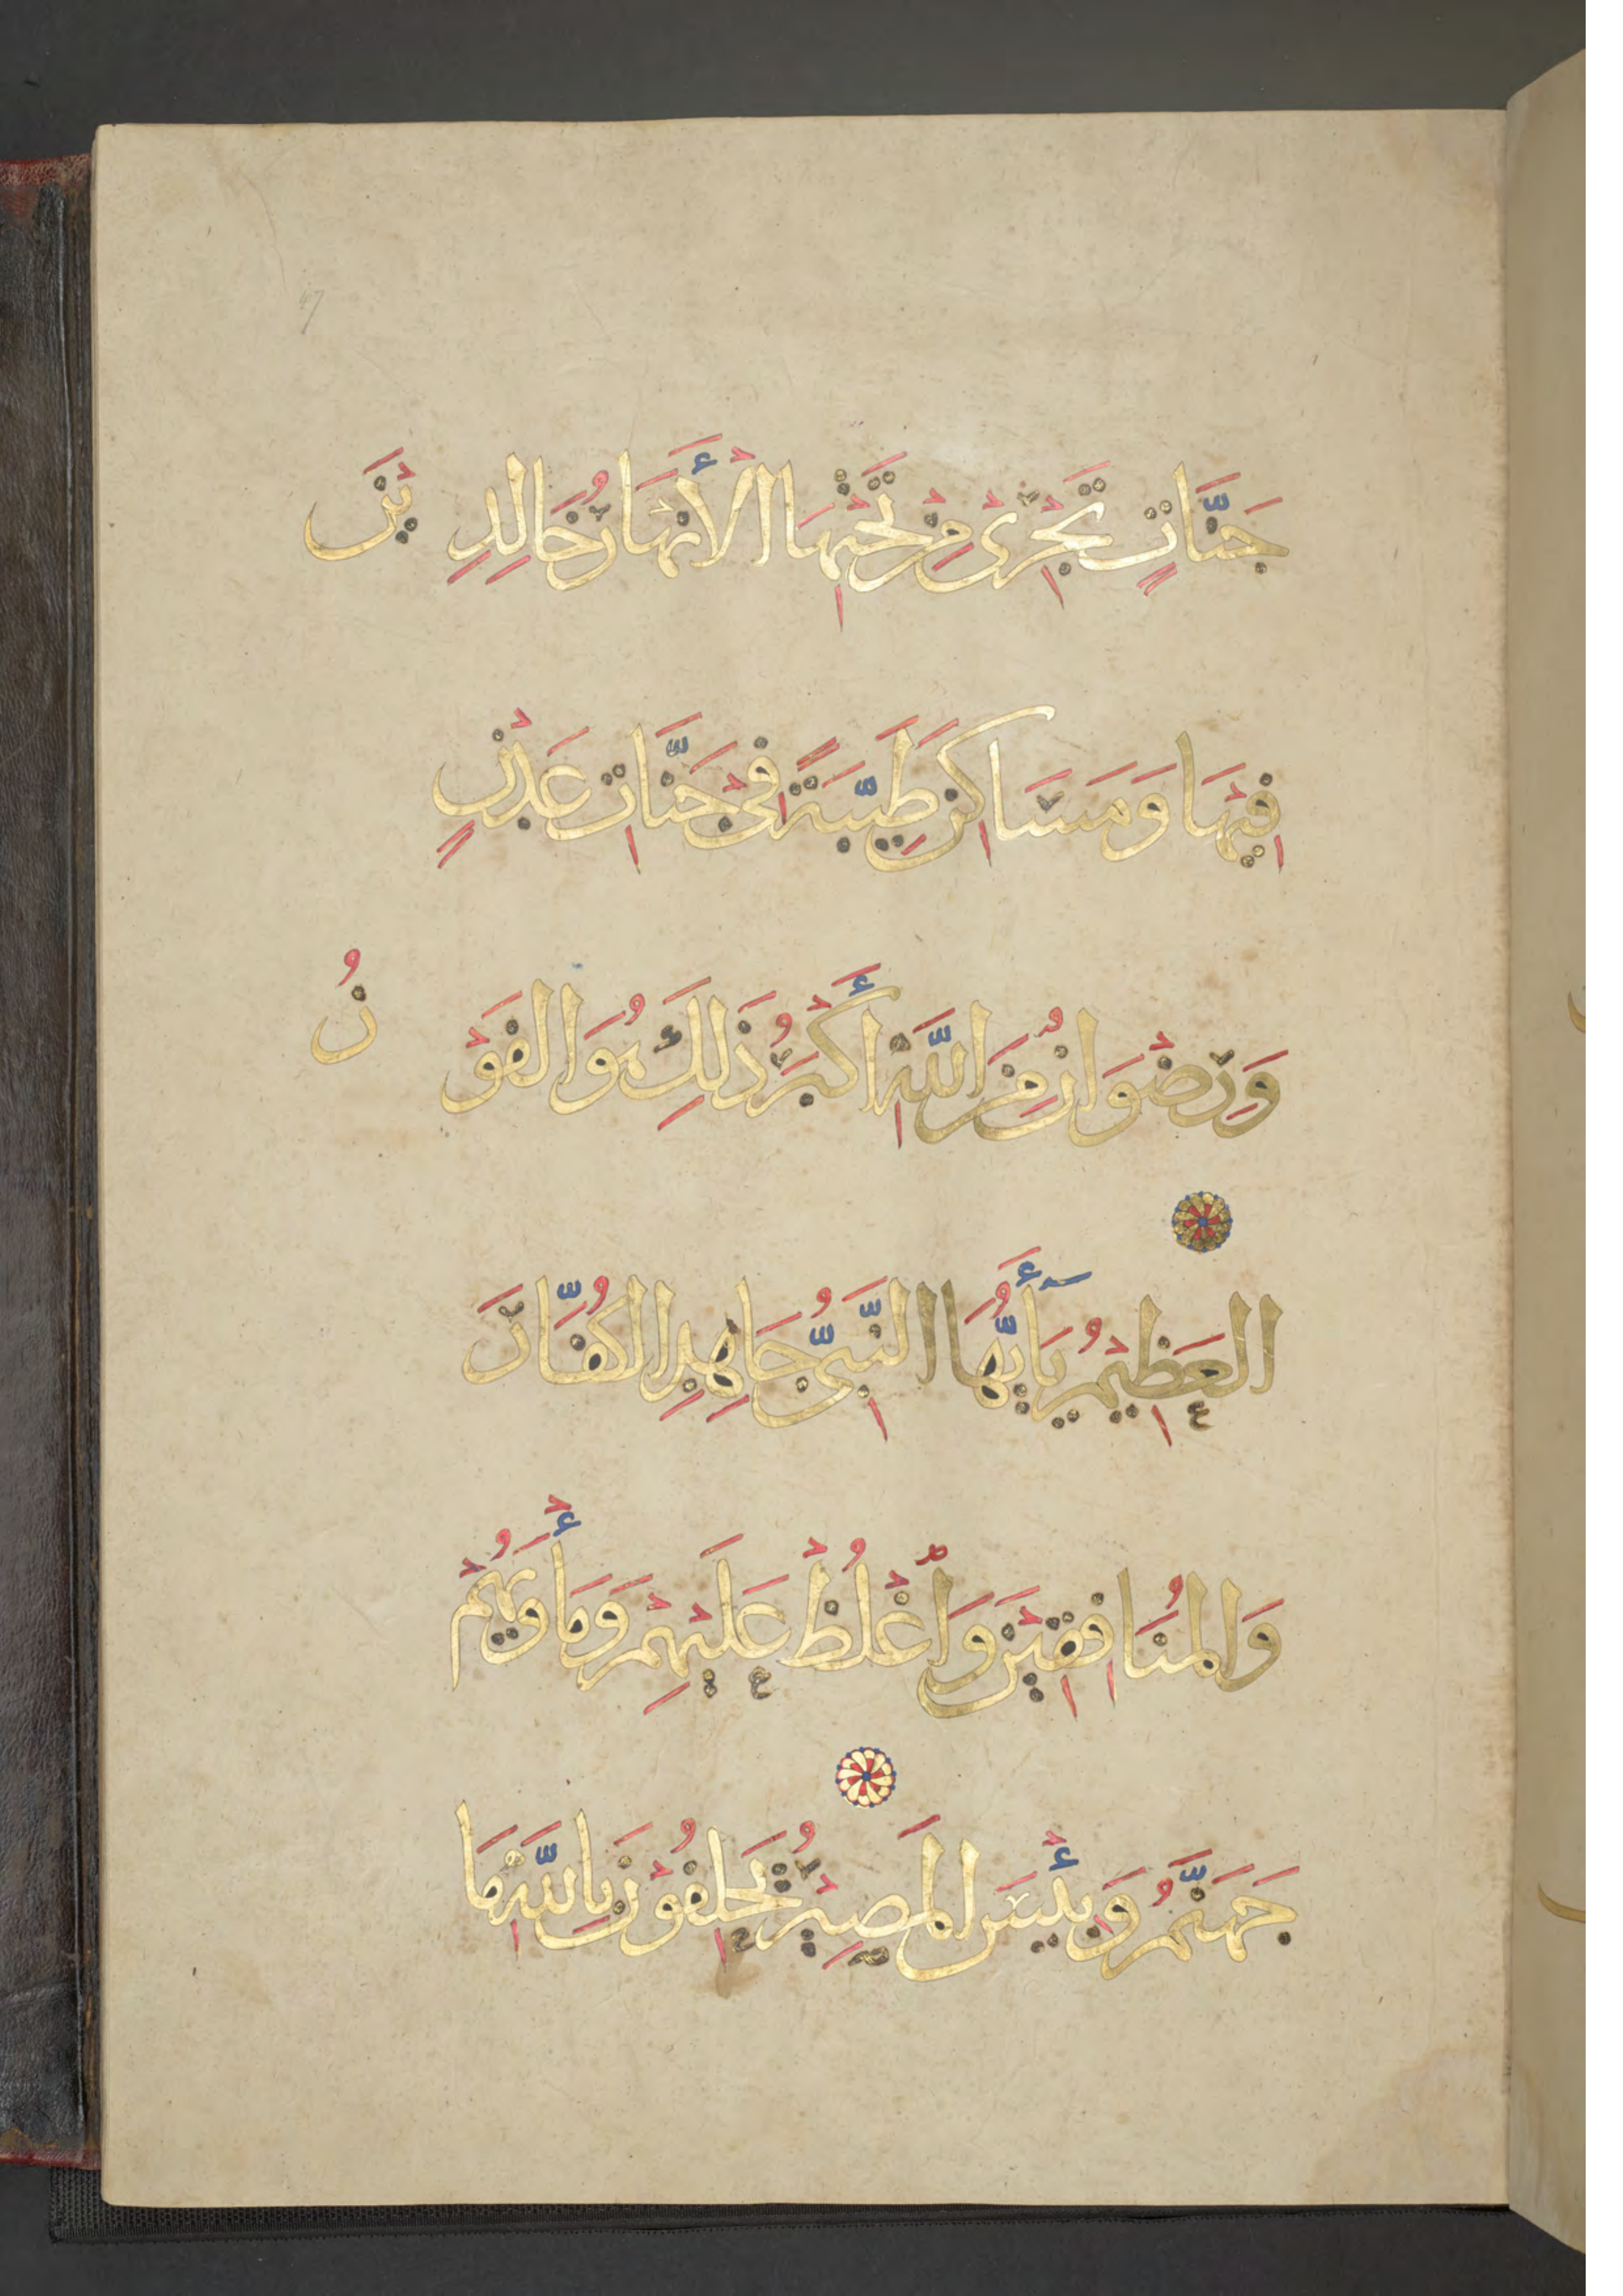 47
جَنَّاتٍ تَجْرِى مِنْ تَحْتِهَا الْأَنْهَارُ خَالِدِيْنَ
فِيْهَا وَمَسَاكِنَ طَيِّبَةً فِى جَنَّاتِ عَدْنٍ
وَرِضْوَانٌ مِنَ اللَّهِ أَكْبَرُ ذَلِكَ هُوَ الْفَوْزُ
الْعَظِيْمُ يَأَيُّهَا النَّبِىُّ جَاهِدِ الْكُفَّارَ
وَالْمُنَافِقِيْنَ وَاغْلُظْ عَلَيْهِمْ وَمَأْوَيهُمْ
جَهَنَّمُ وَبِئْسَ الْمَصِيْرُ يَحْلِفُوْنَ بِاللَّهِ مَا